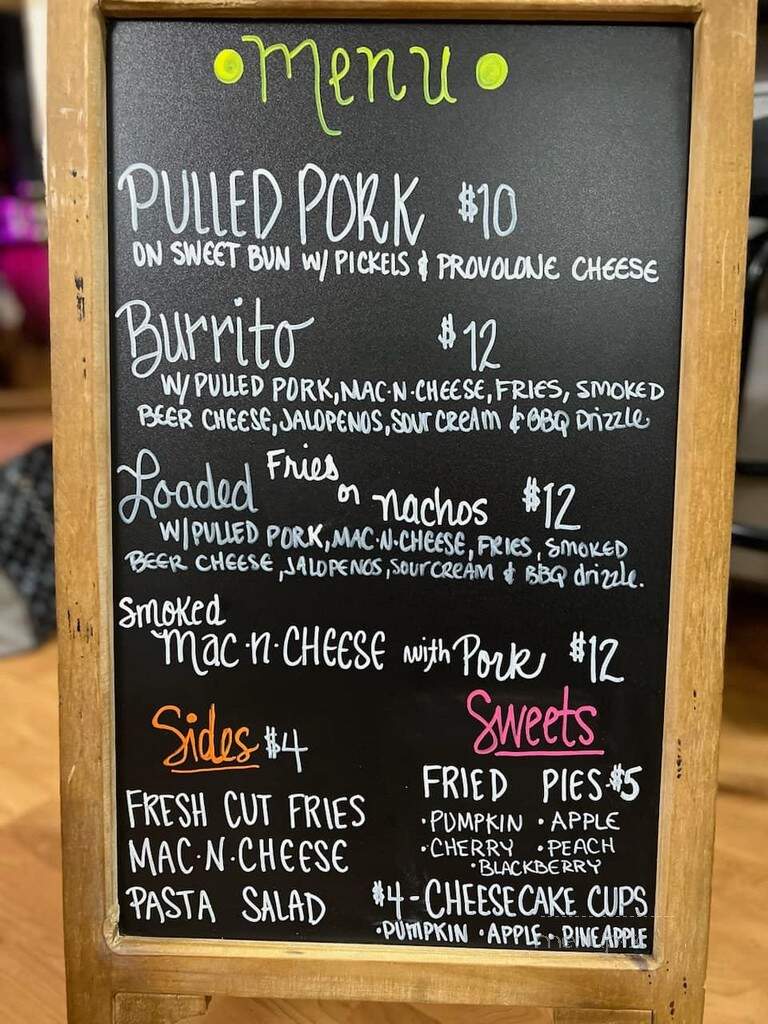 • Menu •
PULLED PORK $10
ON SWEET BUN W/ PICKELS & PROVOLONE CHEESE
Burrito $12
W/ PULLED PORK, MAC·N·CHEESE, FRIES, SMOKED
BEER CHEESE, JALOPENOS, SOUR CREAM & BBQ Drizzle
Loaded Fries or nachos $12
W/ PULLED PORK, MAC·N·CHEESE, FRIES, SMOKED
BEER CHEESE, JALOPENOS, SOUR CREAM & BBQ drizzle.
Smoked
Mac·n·CHEESE with Pork $12
Sides $4
FRESH CUT FRIES
MAC·N·CHEESE
PASTA SALAD
Sweets
FRIED PIES·$5
·PUMPKIN ·APPLE
·CHERRY ·PEACH
·BLACKBERRY
$4-CHEESECAKE CUPS
·PUMPKIN ·APPLE·PINEAPPLE